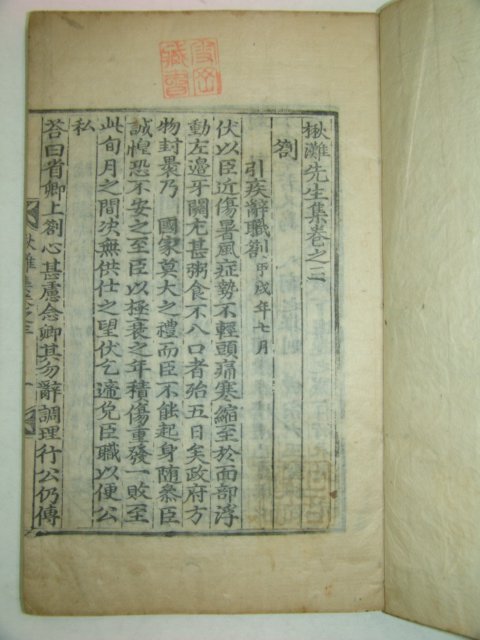 楸灘先生集卷之三
劄
引疾辭職劄甲戌年七月
伏以臣近傷暑風症勢不輕頭痛寒縮至於面部浮
動左邊牙關尤甚粥食不入口者殆五日矣政府方
物封裹乃 國家莫大之禮而臣不能起身隨參臣
誠惶恐不安之至臣以極衰之年積傷重發一敗至
此旬月之間决無供仕之望伏乞遞免臣職以便公
私
答曰省卿上劄心甚慮念卿其勿辭調理行公仍傳